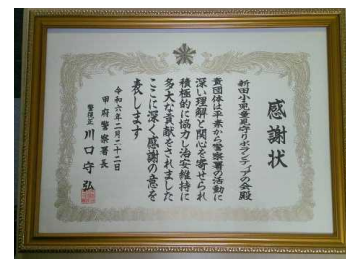 感謝状
新田小児童見守りボランティアの会殿
貴団体は平素から警察署の活動に
深い理解と関心を寄せられ
積極的に協力し治安維持に
多大な貢献をされました
ここに深く感謝の意を
表します
令和六年二月二十二日
甲府警察署長
警視正 川口守弘